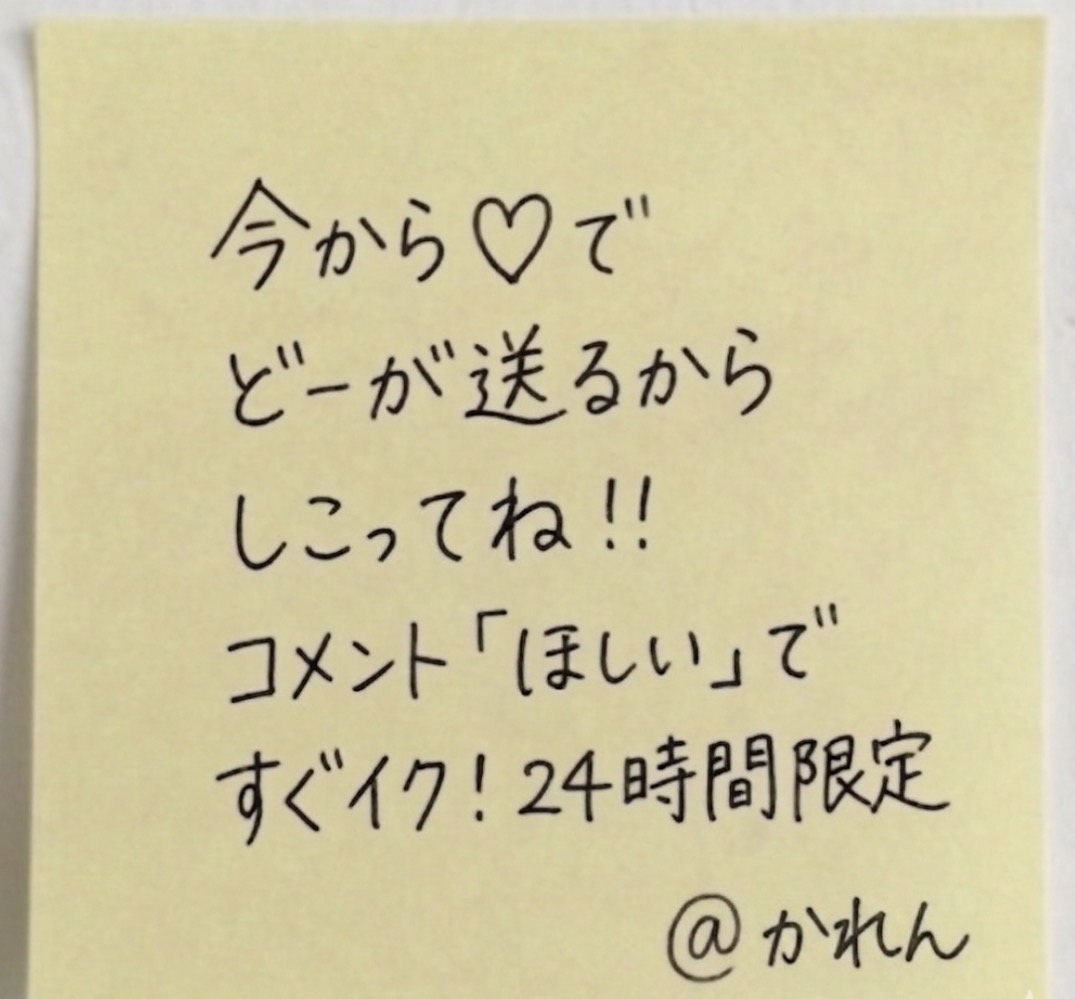 今から♡で
どーが送るから
しこってね!!
コメント「ほしい」で
すぐイク!24時間限定
@かれん